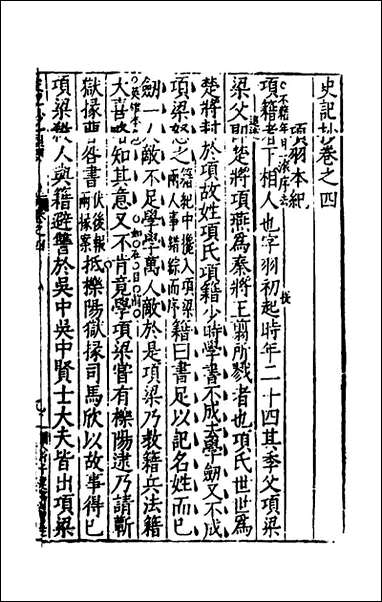 史記抄卷之四
項羽本紀
項籍者下相人也字羽初起時年二十四其季父項梁
梁父即楚將項燕爲秦將王翦所戮者也項氏世世爲
楚將封於項故姓項氏項籍少時學書不成去學劍又不成
項梁怒之籍曰書足以記名姓而已
籍紀中攙入項梁
兩人事錯綜而序
劍一人敵不足學學萬人敵於是項梁乃教籍兵法籍
大喜略知其意又不肯竟學項梁嘗有櫟陽逮乃請蘄
獄掾曹咎書抵櫟陽獄掾司馬欣以故事得已
伏後報
兩掾案
項梁殺人與籍避讐於吳中吳中賢士大夫皆出項梁